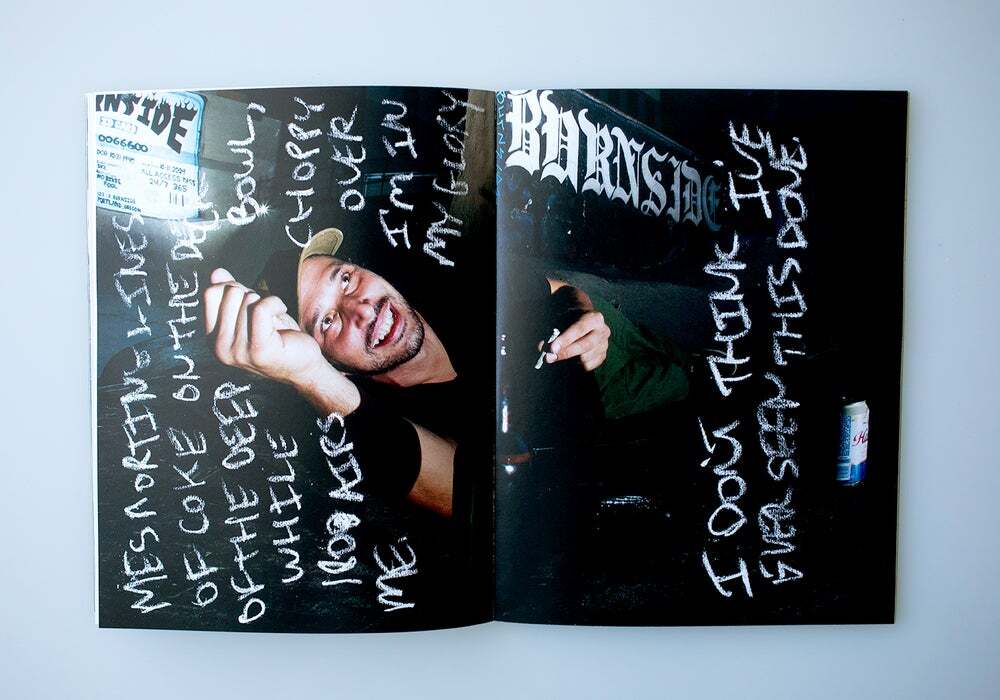 RNSIDE
ID CARD
0066600
ALL ACCESS PASS
24/7 365
PORTLAND, OREGON
ME SNORTING LINES
OF COKE ON THE
OF THE DEEP BOWL,
WHILE CHOPPY
AIRS OVER
ME. I'M IN
MY GLORY
BURNSIDE
I DON'T THINK I'VE
EVER SEEN THIS DONE